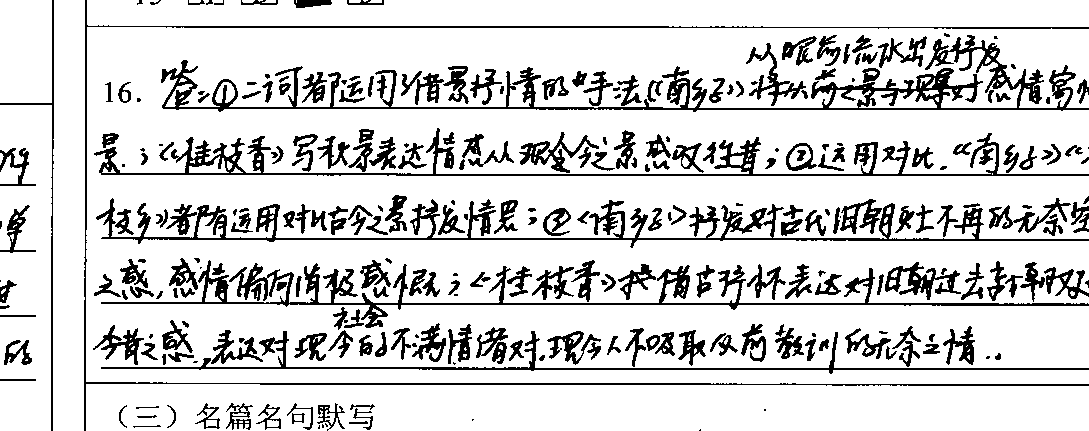 从眼前流水出发抒发
16. 答:①二词都运用了借景抒情的手法,《南乡子》将从前之景与现景对感情寓
景;《桂枝香》写秋景表达情感从现今之景感叹往昔;②运用对比,《南乡子》《
枝乡》都有运用对比古今之景抒发情思;②《南乡子》抒发对古代旧朝 不再的无奈
之感,感情偏向消极感慨;《桂枝香》借古抒怀表达对旧朝过去
今昔之感,表达对现今的不满情绪对现今人不吸取从前教训的无奈之情。
社会
的
(三)名篇名句默写